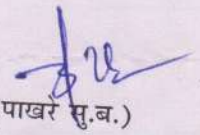 पाखरे सु.ब.)